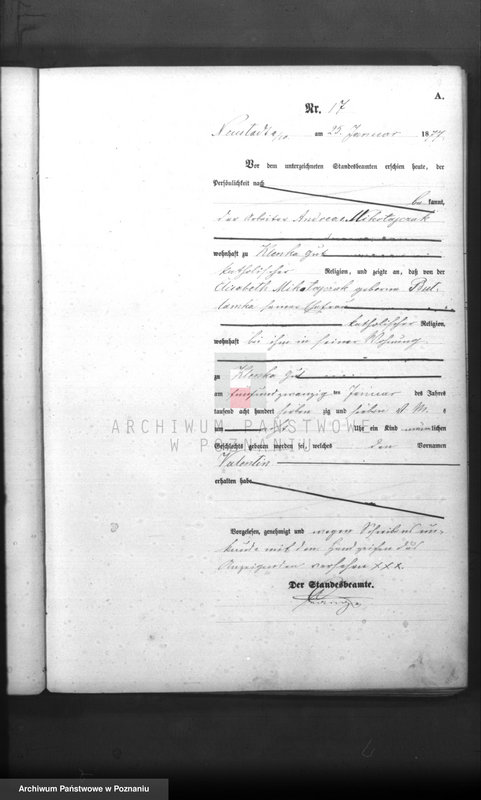 A.
Nr. 17
Neustadt a/W. am 25. Januar 1877.
Vor dem unterzeichneten Standesbeamten erschien heute, der
Persönlichkeit nach
be kannt,
der Arbeiter Andreas Mikołajczak
wohnhaft zu Klenka Gut
katholischer Religion, und zeigte an, daß von der
Elisabeth Mikołajczak geborne
seiner Ehefrau
katholischer Religion,
wohnhaft bei ihm in seiner Wohnung
zu Klenka Gut
am fünfundzwanzig ten Januar des Jahres
tausend acht hundert sieben zig und sieben
um Uhr ein Kind männlichen
Geschlechts geboren worden sei, welches den Vornamen
Valentin
erhalten habe
ARCHIWUM PAŃSTWOWE
W POZNANIU
Vorgelesen, genehmigt und wegen Schreibens un-
kunde mit den Handzeichen des
Anzeigenden versehen xxx.
Der Standesbeamte.
Archiwum Państwowe w Poznaniu